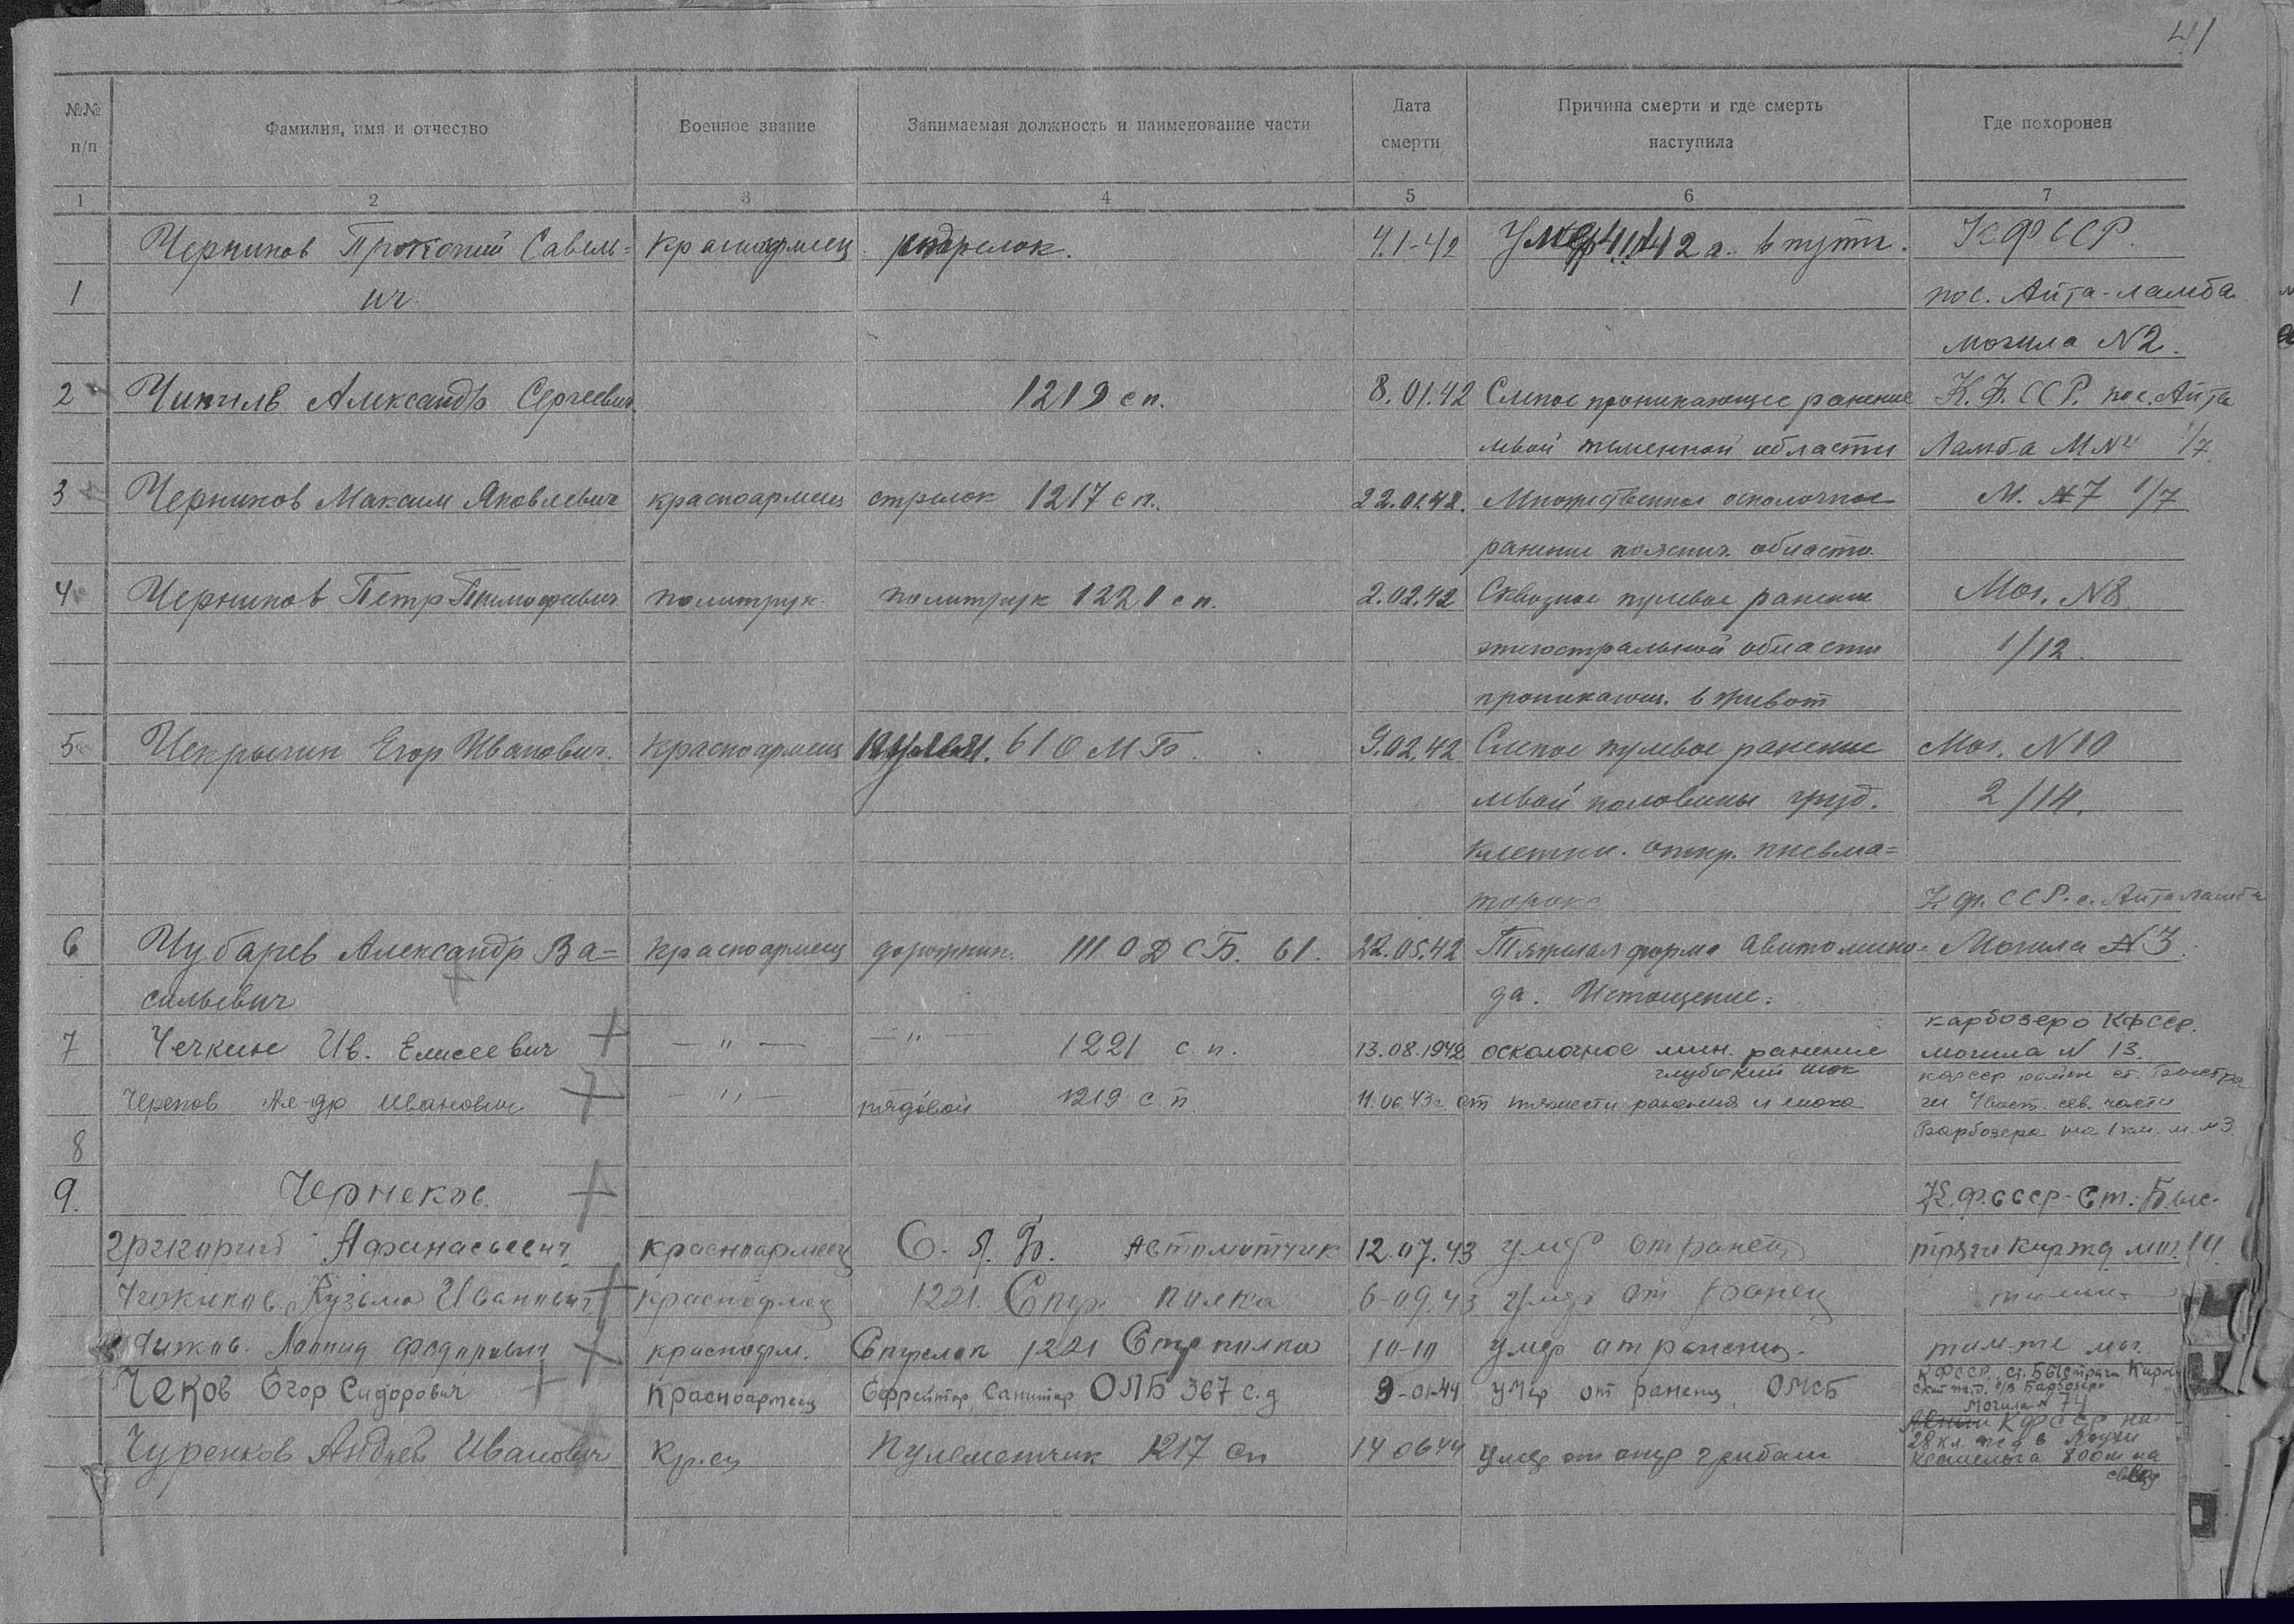 41
№№ п/п Фамилия, имя и отчество Военное звание Занимаемая должность и наименование части Дата смерти Причина смерти и где смерть наступила Где похоронен
1 2 3 4 5 6 7
Черников Прокопий Савель= красноармеец стрелок. 4.1-42 в пути. КФССР.
1 ич пос. Айта-ламба
могила N2.
2 Александр Сергеевич 1219 сп. 8.01.42 Слепое проникающее ранение К.Ф.ССР. пос. Айта
левой теменной области Ламба М N4 1/7
3 Черников Максим Яковлевич красноармеец стрелок 1217 сп. 22.01.42. Множественное осколочное М. №7 1/7
ранение пояснич. области
4 Черников Петр Тимофеевич политрук политрук 1221 сп. 2.02.42 Сквозное пулевое ранение Мог. N8
эпигостральной области 1/12.
проникающ. в живот
5 Чекрыгин Егор Иванович. красноармеец 61 О М Б. 9.02.42 Слепое пулевое ранение Мог. N10
левой половины груд. 2/14.
клетки. откр. пневма=
торокс К.ф.ССР. с. Айта ламба
6 Чубарев Александр Ва= красноармеец дорожник. 111 О Д С Б. 61. 22.05.42 Тяжелая форма Авитомино= Могила №3.
сильевич да. Истощение.
карбозеро КФССР.
7 Чечкин Ив. Елисеевич + — " — — " — 1221 с.п. 13.08.1942 осколочное мин. ранение могила N 13.
глубокий шок
кфсср район ст. Быстря
Черепов Ал-др Иванович + — " — рядовой 1219 с п 11.06.43г. от тяжести ранения и шока ги сев. части
8 Варбозера на 1 км. м. N3.
9. Чернеков + К.Ф.СССР-Ст. Быс-
Григорий Афанасьевич красноармеец Автоматчик 12.07.43 умер от ранен тряги Киржа мог. 14
Кузьма Иванович + красноармец 1221 Стр. полка 6-09.43 умер от ранен
Чижов. Леонид Федорович + красноарм. Стрелок 1221 Стр полка 10-10 умер от ранения. там-же мог.
Чеков Егор Сидорович + Красноармеец Ефрейтор Санитар 367 с.д 9-01-44 умер от ранен ОМСБ КФССР, ст. Быстряги
Варбозеро
Могила N 74
КФССР на
Чуренков Андрей Иванович Кр.ец Пулеметчик 1217 сп 14 06 44 умер от отр грибами 28 кл. жед в Лоухи
Кестеньга 800м на